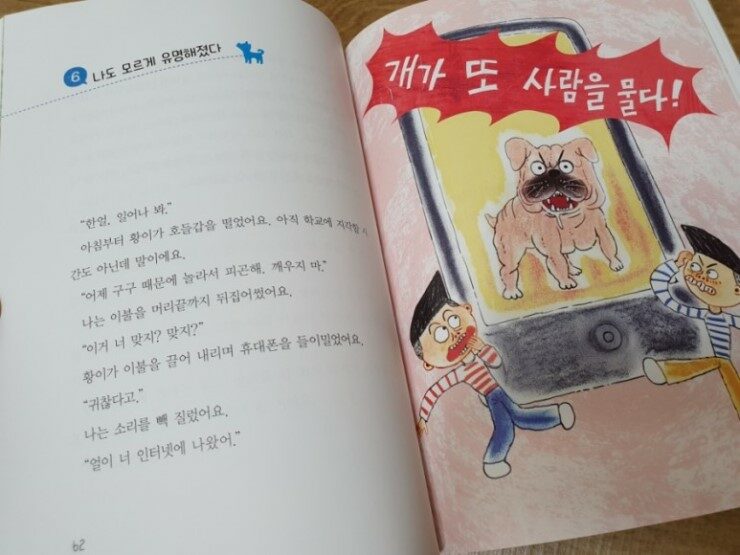 6 나도 모르게 유명해졌다
“한얼, 일어나 봐.”
아침부터 황이가 호들갑을 떨었어요. 아직 학교에 지각할 시
간도 아닌데 말이에요.
“어제 구구 때문에 놀라서 피곤해. 깨우지 마.”
나는 이불을 머리끝까지 뒤집어썼어요.
“이거 너 맞지? 맞지?”
황이가 이불을 끌어 내리며 휴대폰을 들이밀었어요.
“귀찮다고.”
나는 소리를 빽 질렀어요.
“얼이 너 인터넷에 나왔어.”
62
개가 또 사람을 물다!